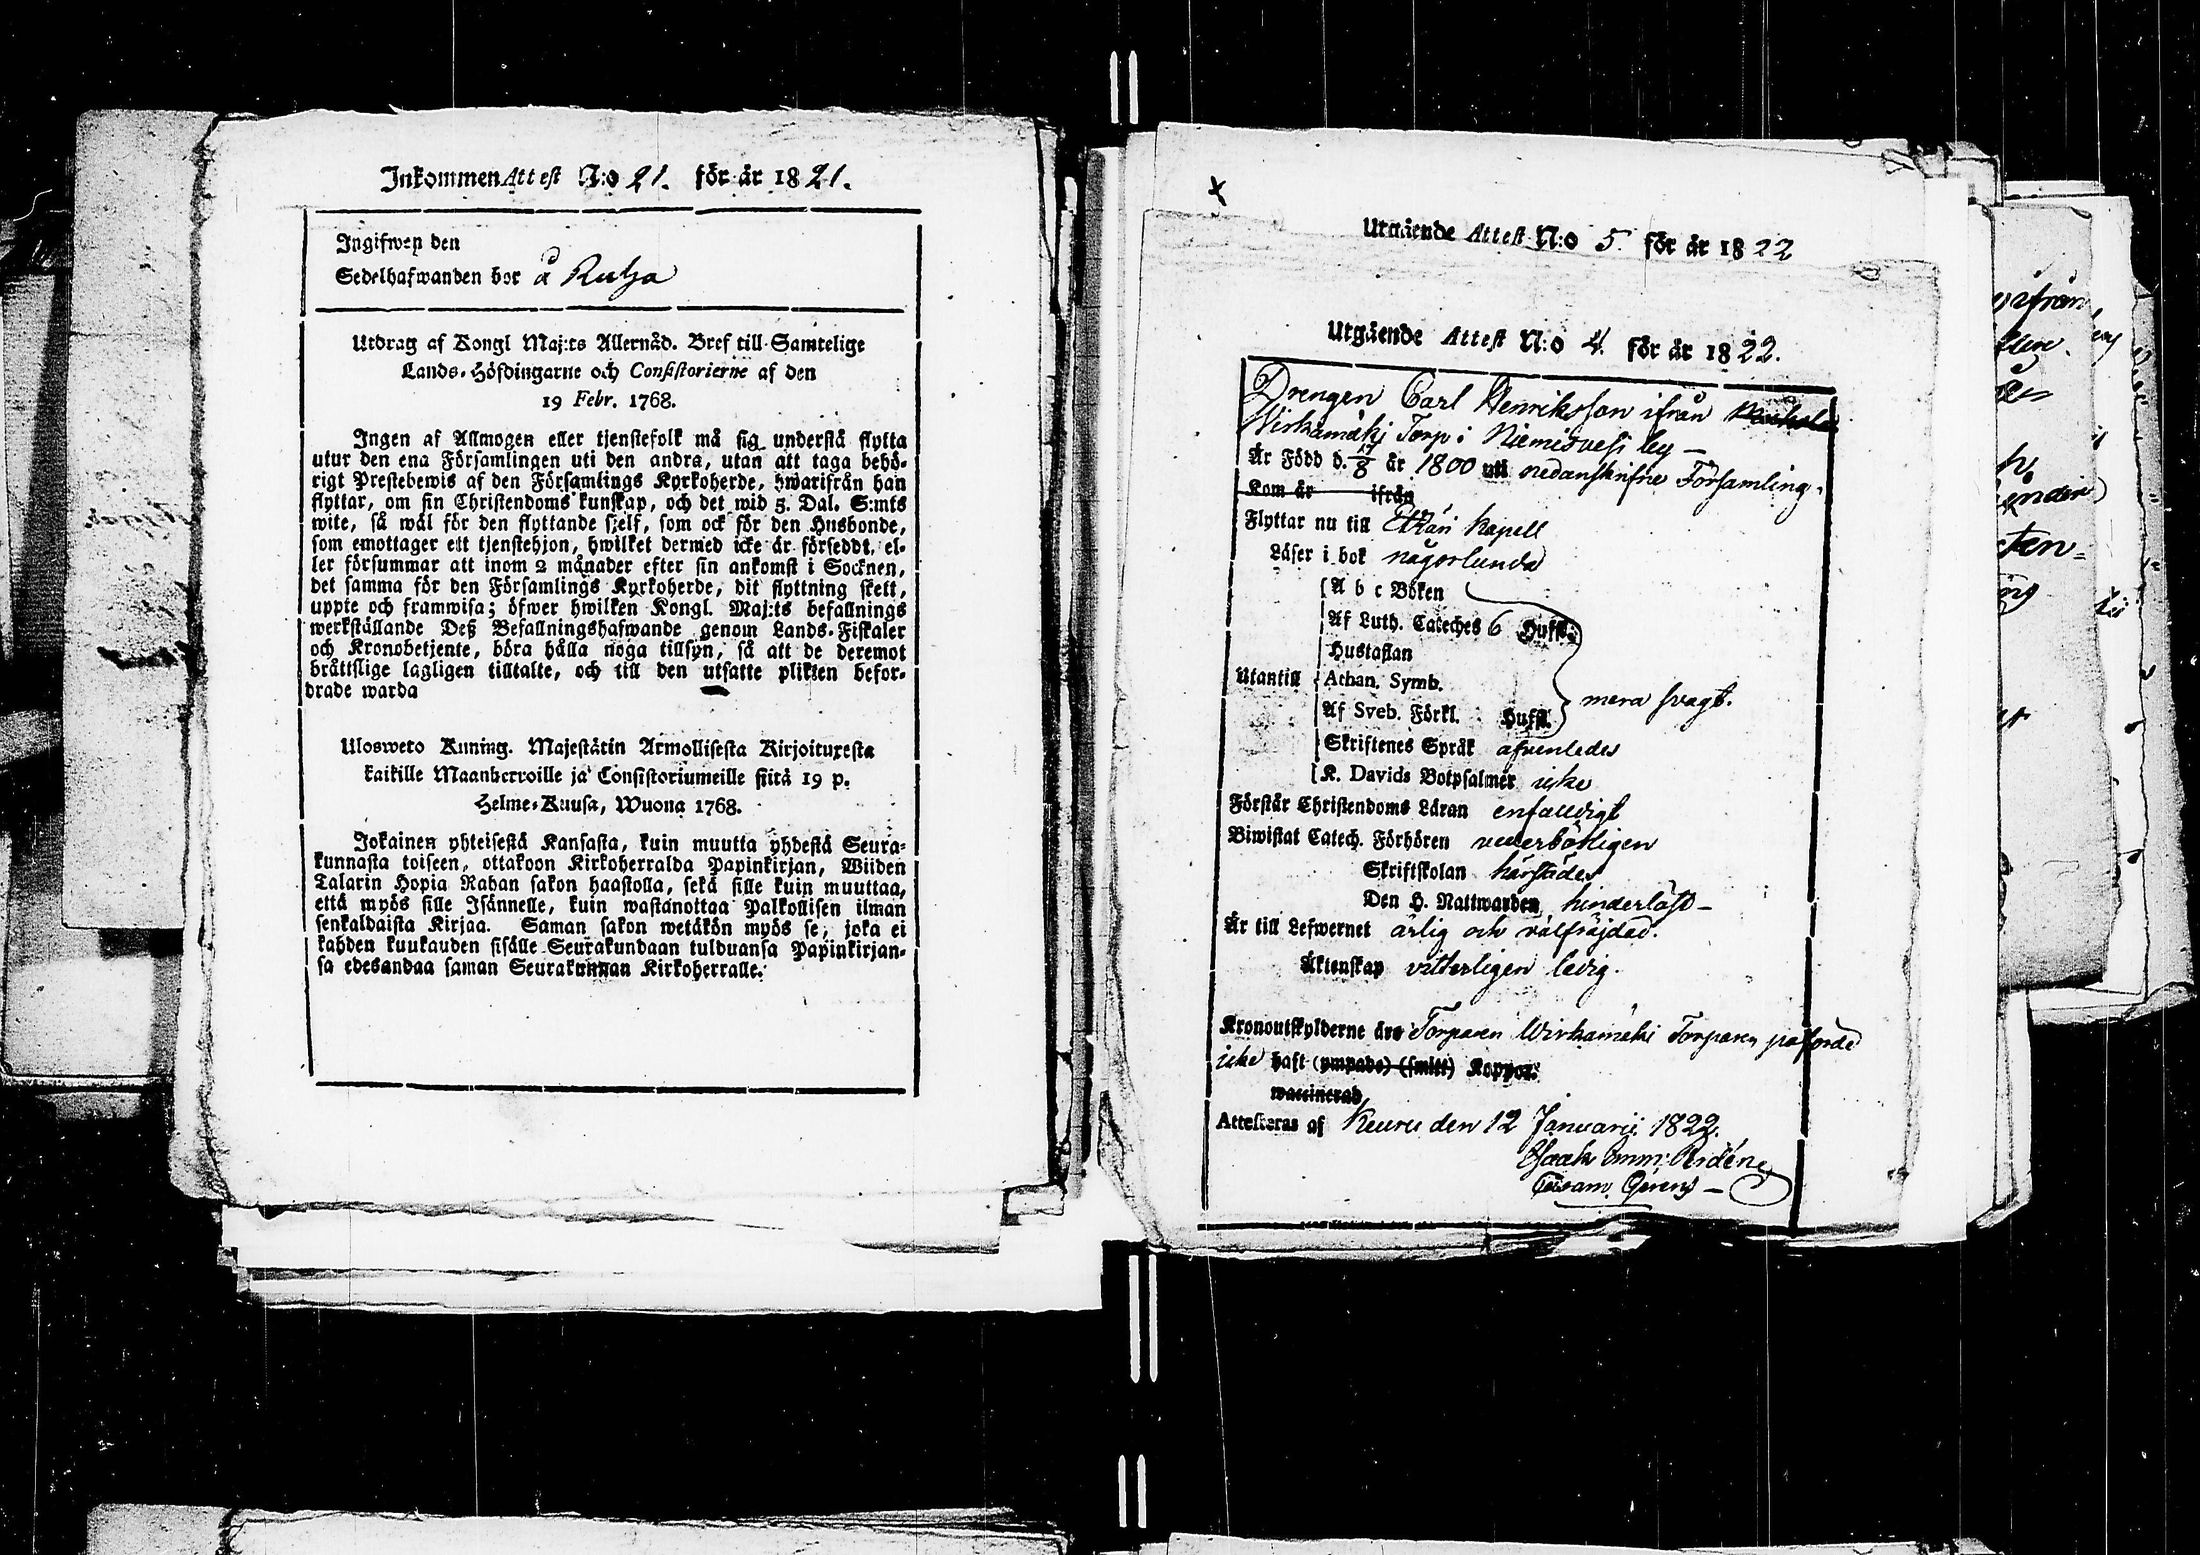 Inkommen Attest N:o 21. för år 1821.
Ingifwen den
Sedelhafwanden bor å Ruha
Utdrag af Kongl Maj:ts Allernåd. Bref till Samtelige
Lands-Höfdingarne och Consistorierne af den
19 Febr. 1768.
Ingen af Allmogen eller tjenstefolk må sig understå flytta
utur den ena Församlingen uti den andra, utan att taga behö-
rigt Prestebewis af den Församlings Kyrkoherde, hwarifrån han
flyttar, om sin Christendoms kunskap, och det wid 5. Dal. S:mts
wite, så wäl för den flyttande sjelf, som ock för den Husbonde,
som emottager ett tjenstehjon, hwilket dermed icke är försedt, el-
ler försummar att inom 2 månader efter sin ankomst i Socknen,
det samma för den Församlings Kyrkoherde, dit flyttning skett,
uppte och framwisa; öfwer hwilken Kongl. Maj:ts befallnings
werkställande Deß Befallningshafwande genom Lands-Fiskaler
och Kronobetjente, böra hålla noga tillsyn, så att de deremot
bråttslige lagligen tilltalte, och till den utsatte plikten befor-
drade warda
Ulosweto Kuning. Majestätin Armollisesta Kirjoituxesta
kaikille Maanherroille ja Consistoriumeille siitä 19 p.
Helme-Kuusa, Wuona 1768.
Jokainen yhteisestä Kansasta, kuin muutta yhdestä Seura-
kunnasta toiseen, ottakoon Kirkoherralda Papinkirjan, Wiiden
Talarin Hopia Rahan sakon haastolla, sekä sille kuin muuttaa,
että myös sille Isännelle, kuin wastanottaa Palkollisen ilman
senkaldaista Kirjaa. Saman sakon wetäkön myös se, joka ei
kahden kuukauden sisälle Seurakundaan tulduansa Papinkirjan-
sa edesandaa saman Seurakunnan Kirkoherralle.
Utgående Attest N:o 5 för år 1822
Utgående Attest N:o 4. för år 1822.
Drengen Carl Henriksson ifrån
Wirkamäki Torp i Niemisvesi by —
Är Född d. 17/8 år 1800 uti nedanskrifne Församling.
Kom år ifrån
Flyttar nu till Etsäri Kapell
Läser i bok någorlunda
A b c Boken
Af Luth. Cateches 6 Hufst.
Hustaflan
Utantill Athan. Symb.
mera svagt.
Af Sveb. Förkl. Hufst.
Skriftenes Språk afvenledes
K. Davids Botpsalmer icke
Förstår Christendoms Läran enfalldigt
Biwistat Catech. Förhören vederbörligen
Skriftskolan härstädes
Den H. Nattwarden hinderlöst —
Är till Lefwernet ärlig och välfräjdad.
Äktenskap vitterligen ledig.
Kronoutskylderne äro Torparen Wirkamäki Torparen påförde
icke haft (ympade) (smitt) Koppor.
waccinerad
Attesteras af Keuru den 12 Januarii 1822.